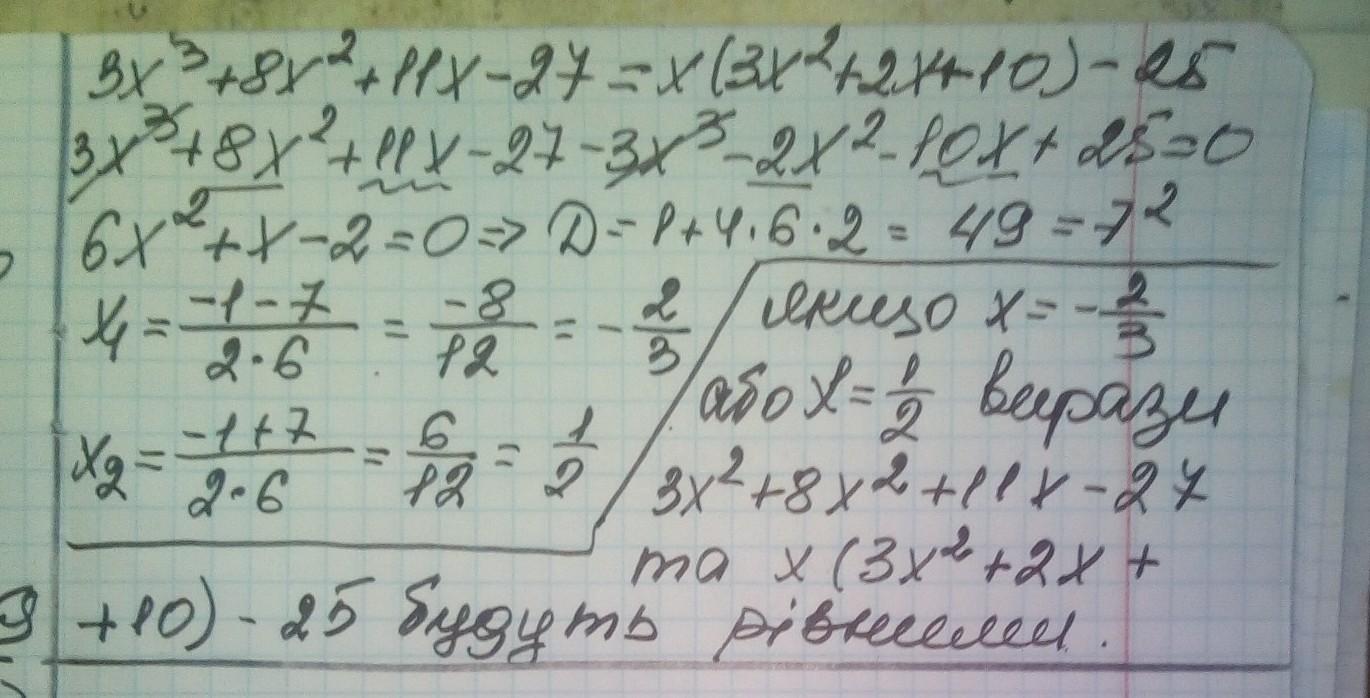 3x³+8x²+11x-27=x(3x²+2x+10)-25
3x³+8x²+11x-27-3x³-2x²-10x+25=0
6x²+x-2=0=> D=1+4·6·2=49=7²
x₁=\frac{-1-7}{2·6}=\frac{-8}{12}=-\frac{2}{3}
x₂=\frac{-1+7}{2·6}=\frac{6}{12}=\frac{1}{2}
якщо x=-\frac{2}{3}
або x=\frac{1}{2} вирази
3x²+8x²+11x-27
та x(3x²+2x+
+10)-25 будуть рівними.